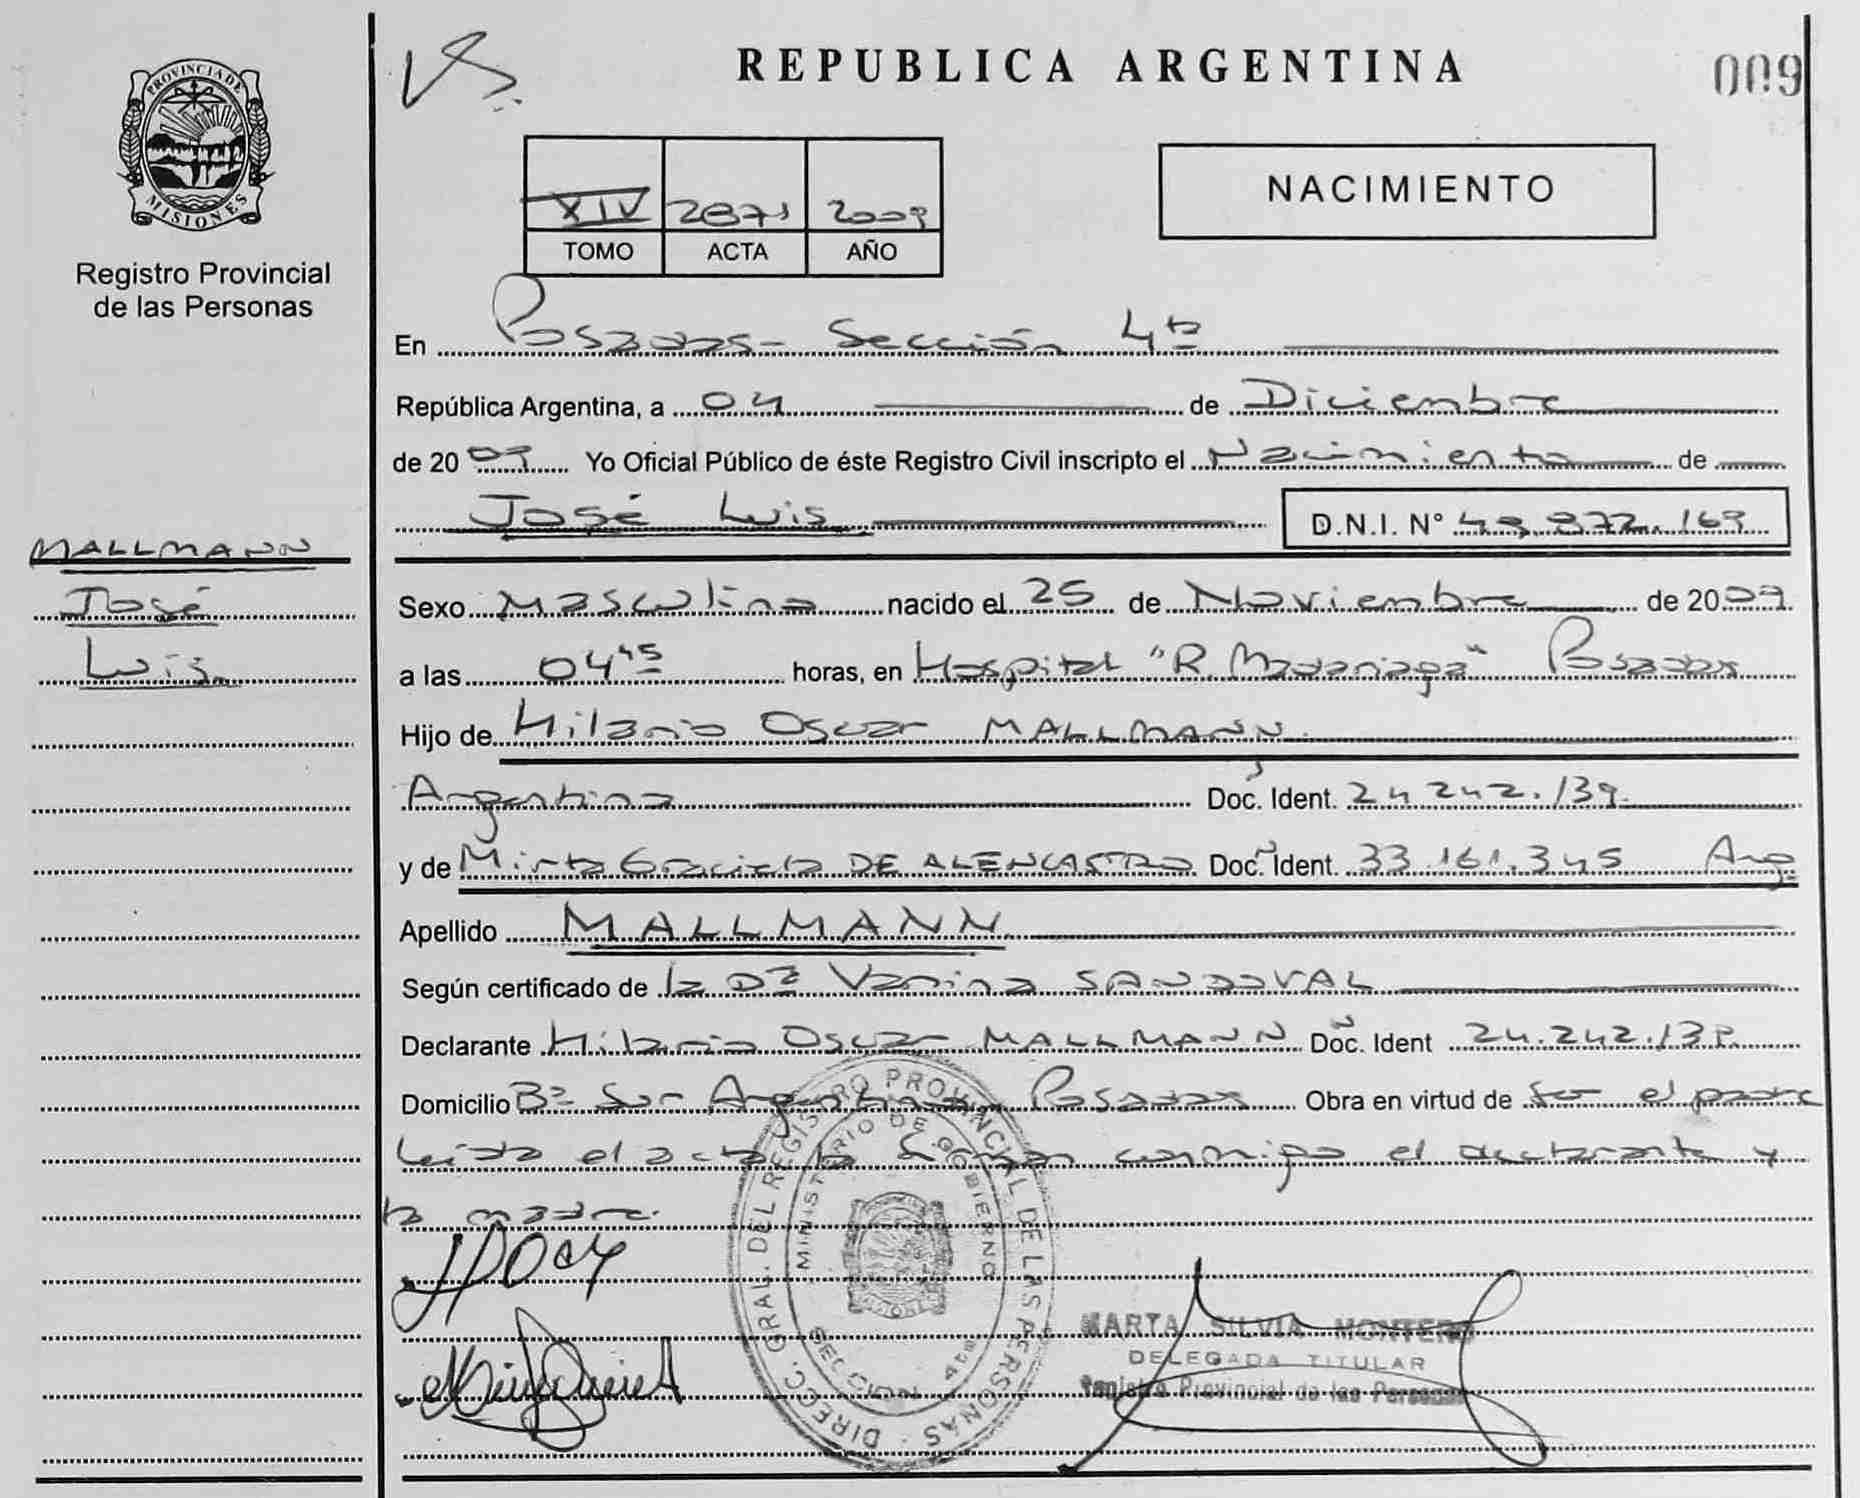 REPUBLICA ARGENTINA
009
PROVINCIA DE
MISIONES
Registro Provincial
de las Personas
NACIMIENTO
XIV 2871 2009
TOMO ACTA AÑO
En Posadas - Sección 4ta
República Argentina, a 04 de Diciembre
de 2009 Yo Oficial Público de éste Registro Civil inscripto el Nacimiento de
José Luis D.N.I. N° 49.872.169
MALLMANN
José
Luis
Sexo Masculino nacido el 25 de Noviembre de 2009
a las 04 45 horas, en Hospital "R. Madariaga" Posadas
Hijo de Hilario Oscar MALLMANN
Argentino Doc. Ident. 24.242.139
y de Mirta Graciela DE ALENCASTRO Doc. Ident. 33.161.345 Arg.
Apellido MALLMANN
Según certificado de la Dra Vanina SANDOVAL
Declarante Hilario Oscar MALLMANN Doc. Ident 24.242.139
Domicilio Bº Sur Argentino Posadas Obra en virtud de ser el padre
Leída el acta la firman conmigo el declarante y
la madre.
DIRECC. GRAL. DEL REGISTRO PROVINCIAL DE LAS PERSONAS
MINISTERIO DE GOBIERNO
SECCION 4ta
MARTA SILVIA MONTERO
DELEGADA TITULAR
Registro Provincial de las Personas